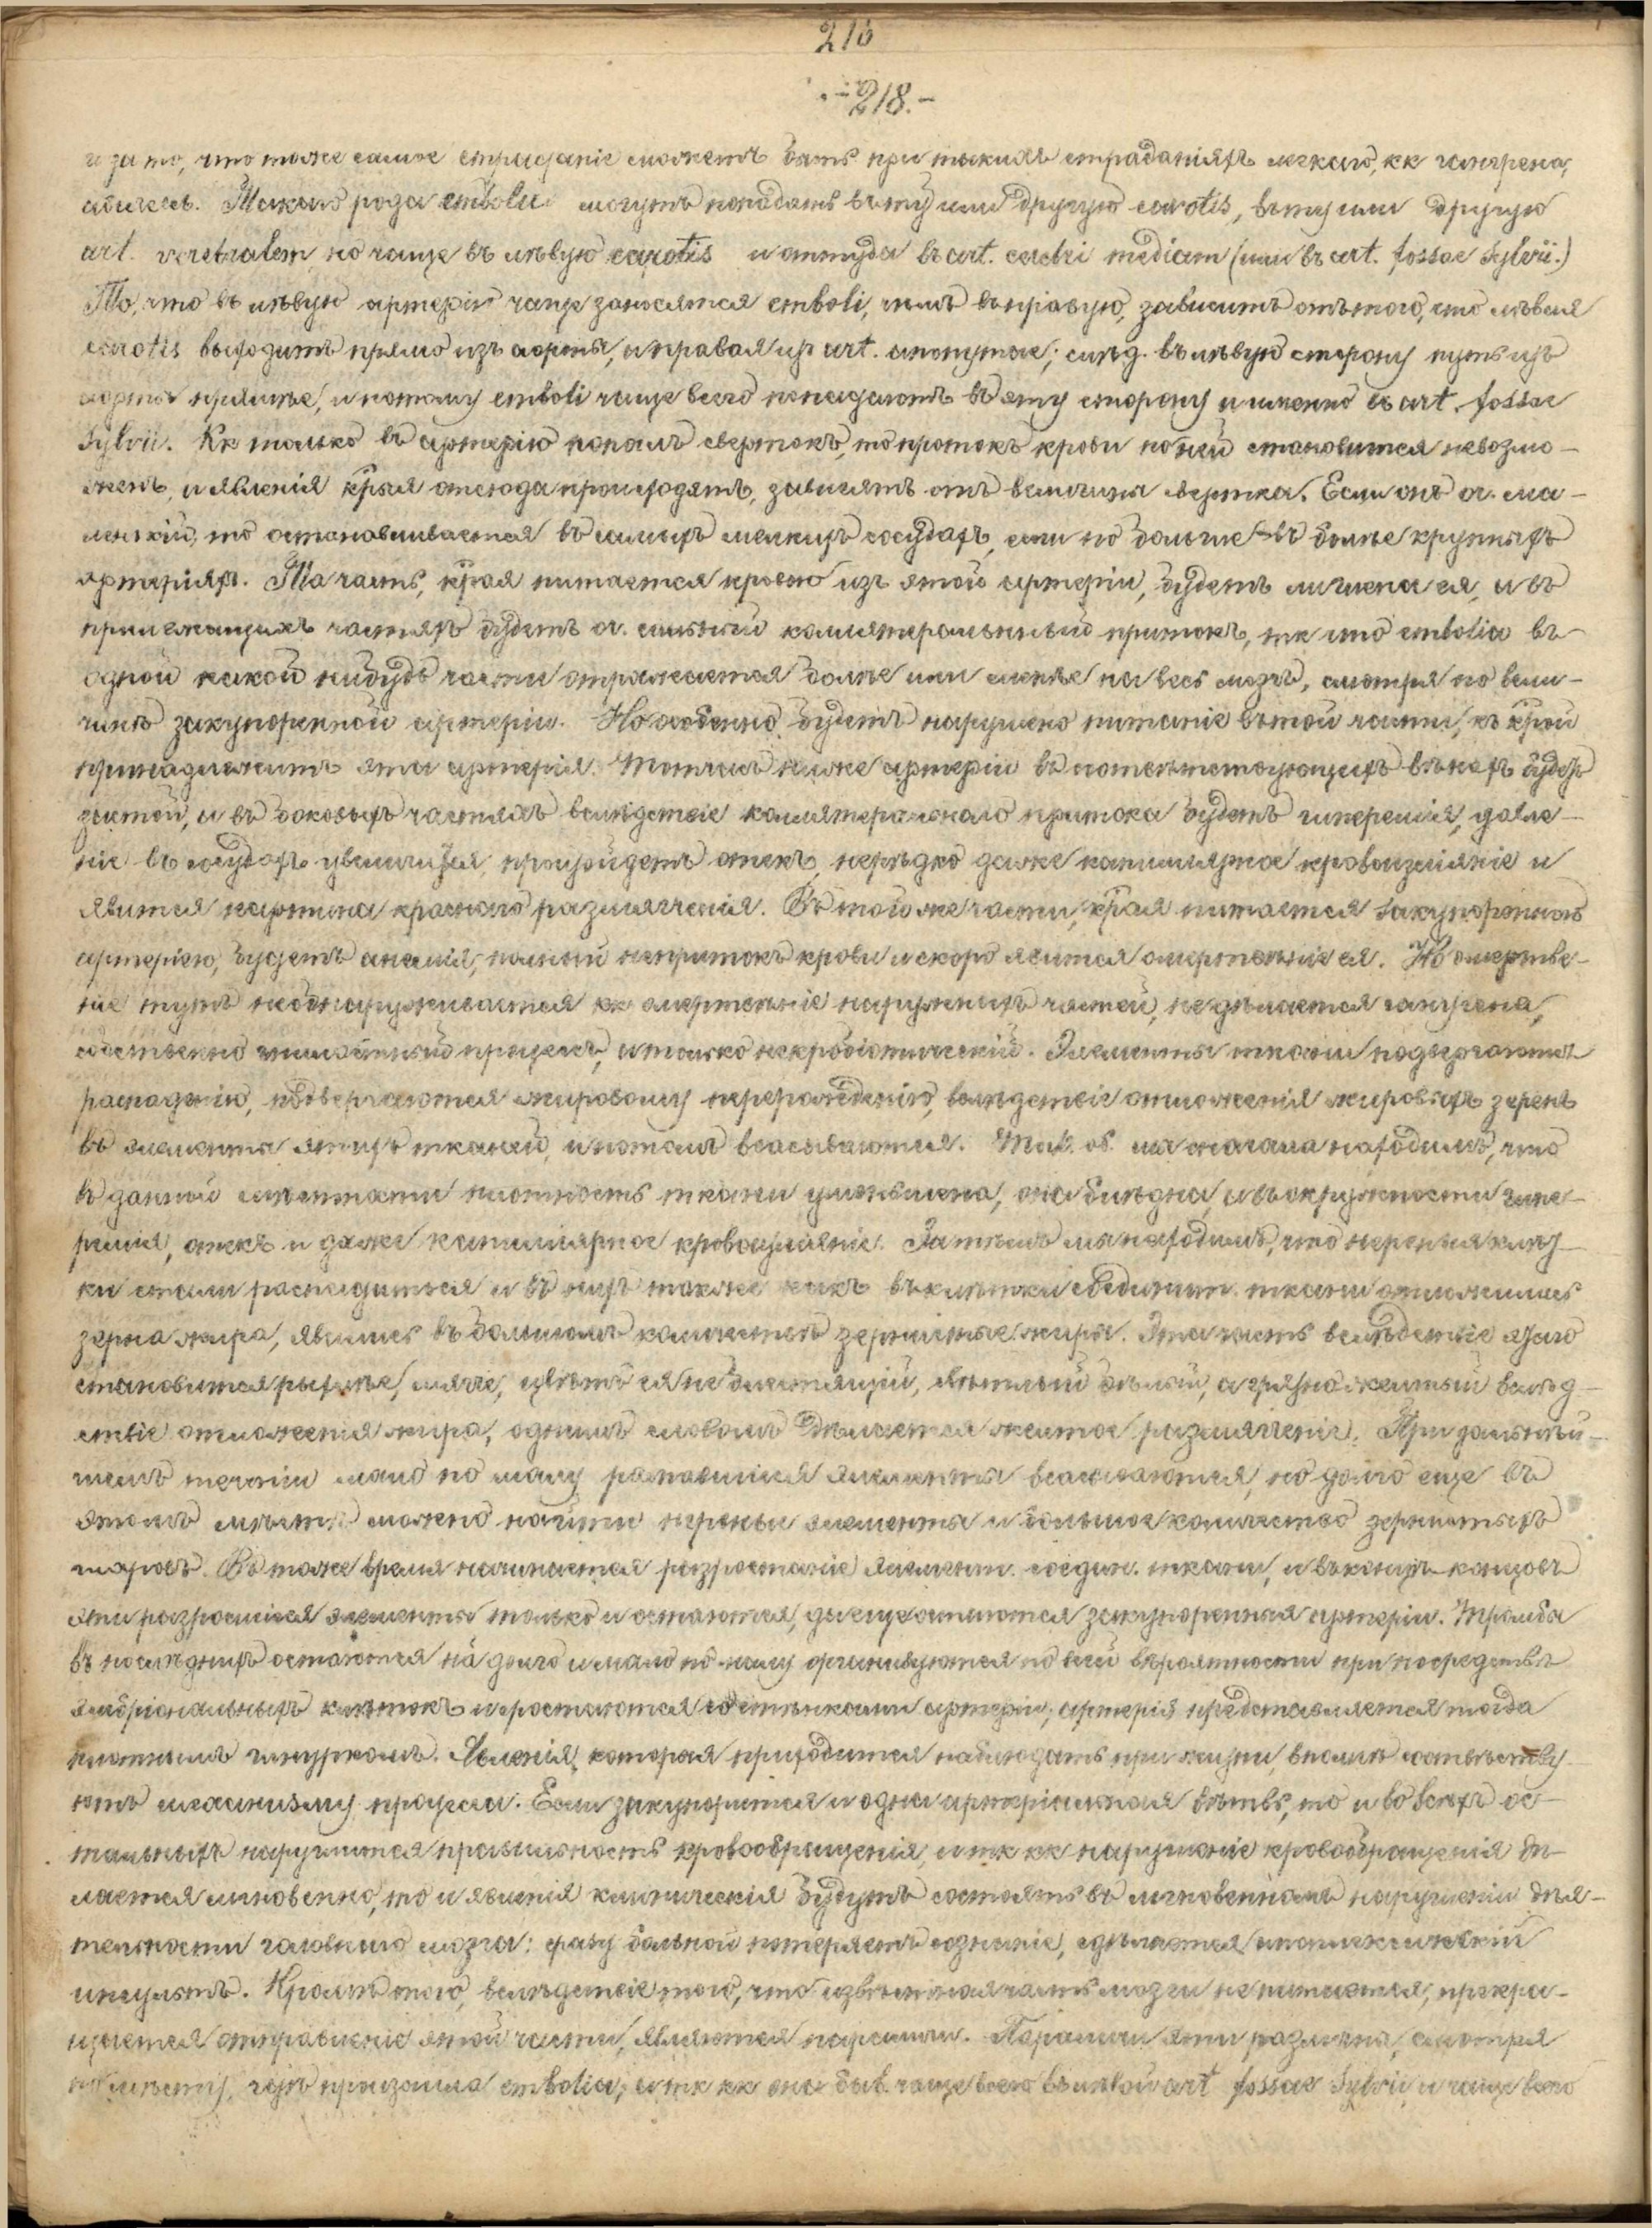 216
- 218. -
и за то, что тоже самое страданіе можетъ быть при такихъ страданіяхъ легкаго, кк гангрена,
абсцесъ. Такого рода emboli могутъ попадать въ ту или другую carotis, въ ту или другую
art. vertebralem, но чаще въ лѣвую carotis и оттуда въ art. cerebri mediam (или въ art. fossae Sylvii.)
То, что въ лѣвую артерію чаще заносятся emboli, чѣмъ въ правую, зависитъ отъ того, что лѣвая
carotis выходитъ прямо изъ аорты, а правая из art. anonymae; слѣд. въ лѣвую сторону путь изъ
аорты прямѣе, и потому emboli чаще всего попадаютъ въ эту сторону и именно въ art. fossae
Sylvii. Кк только въ артерію попалъ свертокъ, то протокъ крови по ней становится невозмо-
женъ, и явленія крыя отсюда происходятъ, зависятъ отъ величины свертка. Если онъ оч. ма-
ленькій, то останавливается въ самыхъ мелкихъ сосудахъ, если по больше - въ болѣе крупныхъ
артеріяхъ. Та часть, края питается кровью изъ этой артеріи, будетъ лишена ея, и въ
прилежащихъ частяхъ будетъ оч. сильный коллятеральный притокъ, тк что embolia въ
одной какой нибудь части отражается болѣе или менѣе на весь мозгъ, смотря по вели-
чинѣ закупоренной артеріи. Но особенно будетъ нарушено питаніе въ той части, къ крой
принадлежитъ эта артерія. Тотчасъ ниже артеріи въ соотвѣтствующихъ вѣнахъ будетъ
застой, и въ боковыхъ частяхъ вслѣдствіе коллятеральнаго притока будетъ гиперемія, давле-
ніе въ сосудахъ увеличится, произойдетъ отекъ, нерѣдко даже капиллярное кровоизліяніе и
явится картина краснаго размягченія. Въ той же части, края питается закупоренною
артеріею, будетъ анемія, полный непритокъ крови и скоро явится омертвѣніе ея. Но омертвѣ-
ніе тутъ не обнаруживается кк омертвѣніе наружныхъ частей, не дѣлается гангрена,
собственно гнилостный процесъ, а только некробіотическій. Элементы ткани подвергаются
распаденію, подвергаются жировому перерожденію, вслѣдствіе отложенія жировыхъ зеренъ
въ элементы этихъ тканей, и потомъ всасываются. Так. об. мы сначала находимъ, что
въ данной мѣстности плотность ткани уменьшена, она блѣдна, а въ окружности гипе-
ремія, отекъ и даже капиллярное кровоизліяніе. Затѣмъ мы находимъ, что нервныя клѣт-
ки стали распадаться и въ нихъ также какъ въ клѣтки соединит. ткани отложились
зерна жира, явились въ большомъ количествѣ зернистые шары. Эта часть вслѣдствіе этого
становится рыхлѣе, мягче, цвѣтъ ея не блестящій, свѣтлый бѣлый, а грязно желтый вслѣд-
ствіе отложенія жира, однимъ словомъ дѣлается желтое размягченіе. При дальнѣй-
шемъ теченіи мало по малу распавшіеся элементы всасываются, но долго еще въ
этомъ мѣстѣ можно найти нервные элементы и большое количество зернистыхъ
шаровъ. Въ тоже время начинается разростаніе элемент. соедин. ткани, и въ концѣ концовъ
эти разросшіеся элементы только и остаются, да еще остаются закупоренныя артеріи. Тромбы
въ послѣднихъ остаются на долго и мало по малу организуются по всей вѣроятности при посредствѣ
эмбріональныхъ клѣтокъ и сростаются со стѣнками артеріи; артерія представляется тогда
плотнымъ шнуркомъ. Явленія, которыя приходится наблюдать при жизни, вполнѣ соотвѣтству-
ютъ механизму процеса. Если закупорится и одна артеріальная вѣтвь, то и во всѣхъ ос-
тальныхъ нарушится правильность кровообращенія, и тк кк нарушеніе кровообращенія дѣ-
лается мгновенно, то и явленія клиническія будутъ состоять въ мгновенномъ нарушеніи дѣя-
тельности головнаго мозга: сразу больной потеряетъ сознаніе, сдѣлается апоплексическій
инсультъ. Кромѣ того, вслѣдствіе того, что извѣстная часть мозга не питается, прекра-
щается отправленіе этой части, являются параличи. Параличи эти различны, смотря
по мѣсту, гдѣ произошла embolia; а тк кк она быв. чаще всего въ лѣвой art fossae Sylvii, и чаще всего